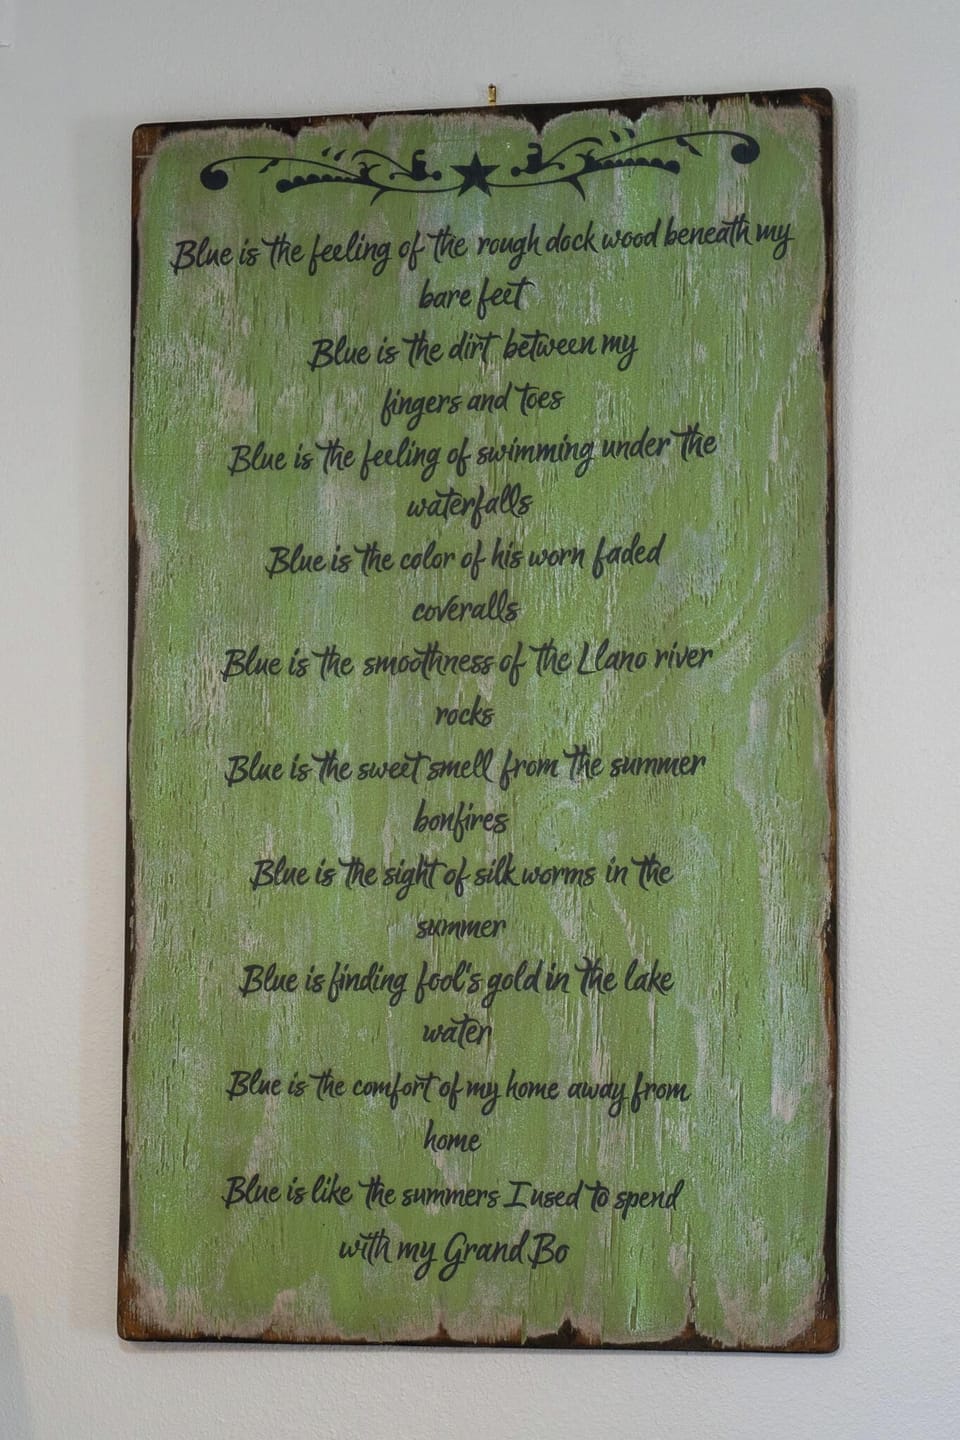 Blue is the feeling of the rough dock wood beneath my
bare feet
Blue is the dirt between my
fingers and toes
Blue is the feeling of swimming under the
waterfalls
Blue is the color of his worn faded
coveralls
Blue is the smoothness of the Llano river
rocks
Blue is the sweet smell from the summer
bonfires
Blue is the sight of silk worms in the
summer
Blue is finding fool's gold in the lake
water
Blue is the comfort of my home away from
home
Blue is like the summers I used to spend
with my Grand Bo